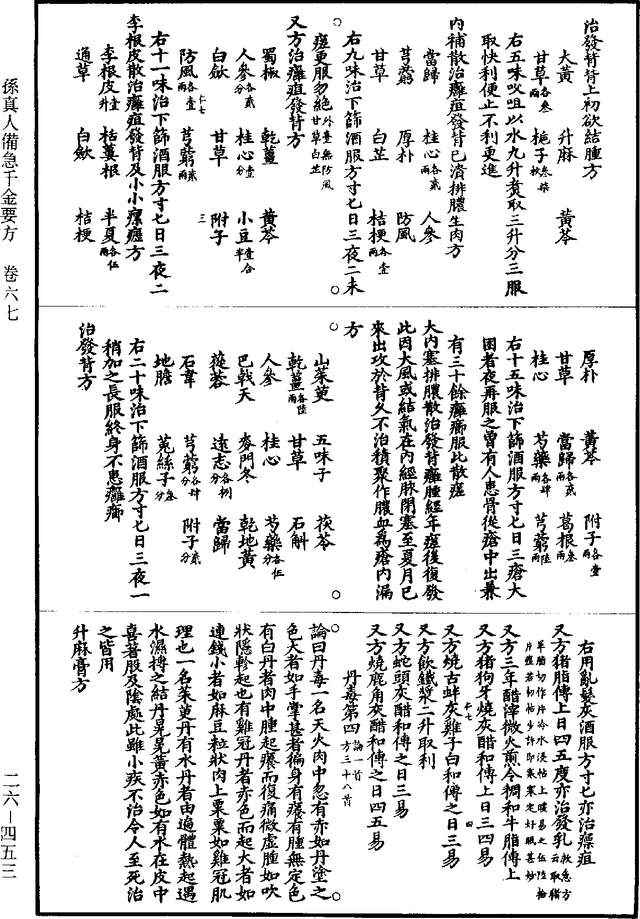 治發背背上初欲結腫方
大黃　升麻　黃芩
甘草各叁兩　梔子叁拾枚
右五味㕮咀以水九升煑取三升分三服
取快利便止不利更進
內補散治癰疽發背已潰排膿生肉方
當歸　桂心各貳兩　人參
芎藭　厚朴　防風
甘草　白芷　桔梗各壹兩
右九味治下篩酒服方寸匕日三夜二未
瘥更服勿絕外臺無防風甘草白芷
又方治癰疽發背方
蜀椒　乾薑　黃芩
人參各貳分　桂心壹分　小豆壹合半
白斂　甘草　附子
防風各壹兩　芎藭貳兩
右十一味治下篩酒服方寸匕日三夜二
李根皮散治癰疽發背及小小瘰癧方
李根皮壹升　栝蔞根　半夏各伍兩
通草　白斂　桔梗
厚朴　黃芩　附子各壹兩
甘草　當歸各貳兩　葛根叁兩
桂心　芍藥各肆兩　芎藭陸兩
右十五味治下篩酒服方寸匕日三瘡大
困者夜再服之曾有人患骨從瘡中出兼
有三十餘癰癤服此散瘥
大內塞排膿散治發背癰腫經年瘥後復發
此因大風或結氣在內經脉閉塞至夏月已
來出攻於背久不治積聚作膿血為瘡內漏
方
山茱萸　五味子　茯苓
乾薑各陸兩　甘草　石斛
人參　桂心　芍藥各伍分
巴戟天　麥門冬　乾地黃
蓯蓉　遠志各捌　當歸
石韋　芎藭各肆分　附子貳分
地膽　菟絲子各叁
右二十味治下篩酒服方寸匕日三夜一
稍加之長服終身不患癰癤
治發背方
右用亂髮灰酒服方寸匕亦治瘭疽
又方豬脂傅上日四五度亦治發乳
又方三年醋滓微火煎令稠和牛脂傅上
又方豬狗牙燒灰醋和傅上日三四易
又方燒古蚌灰雞子白和傅之日三易
又方飲鐵漿二升取利
又方蛇頭灰醋和傅之日三易
又方燒鹿角灰醋和傅之日四五易
丹毒第四論一首方三十八首
論曰丹毒一名天火肉中忽有赤如丹塗之
色大者如手掌甚者徧身有癢有腫無定色
有白丹者肉中腫起癢而復痛微虛腫如吹
狀隱軫起也有雞冠丹者赤色而起大者如
連錢小者如麻豆粒狀肉上粟粟如雞冠肌
理也一名茱萸丹有水丹者由遍體熱起遇
水濕搏之結丹晃晃黃赤色如有水在皮中
喜著股及陰處此雖小疾不治令人至死治
之皆用
升麻膏方
孫真人備急千金要方　卷六七
二六—四五三